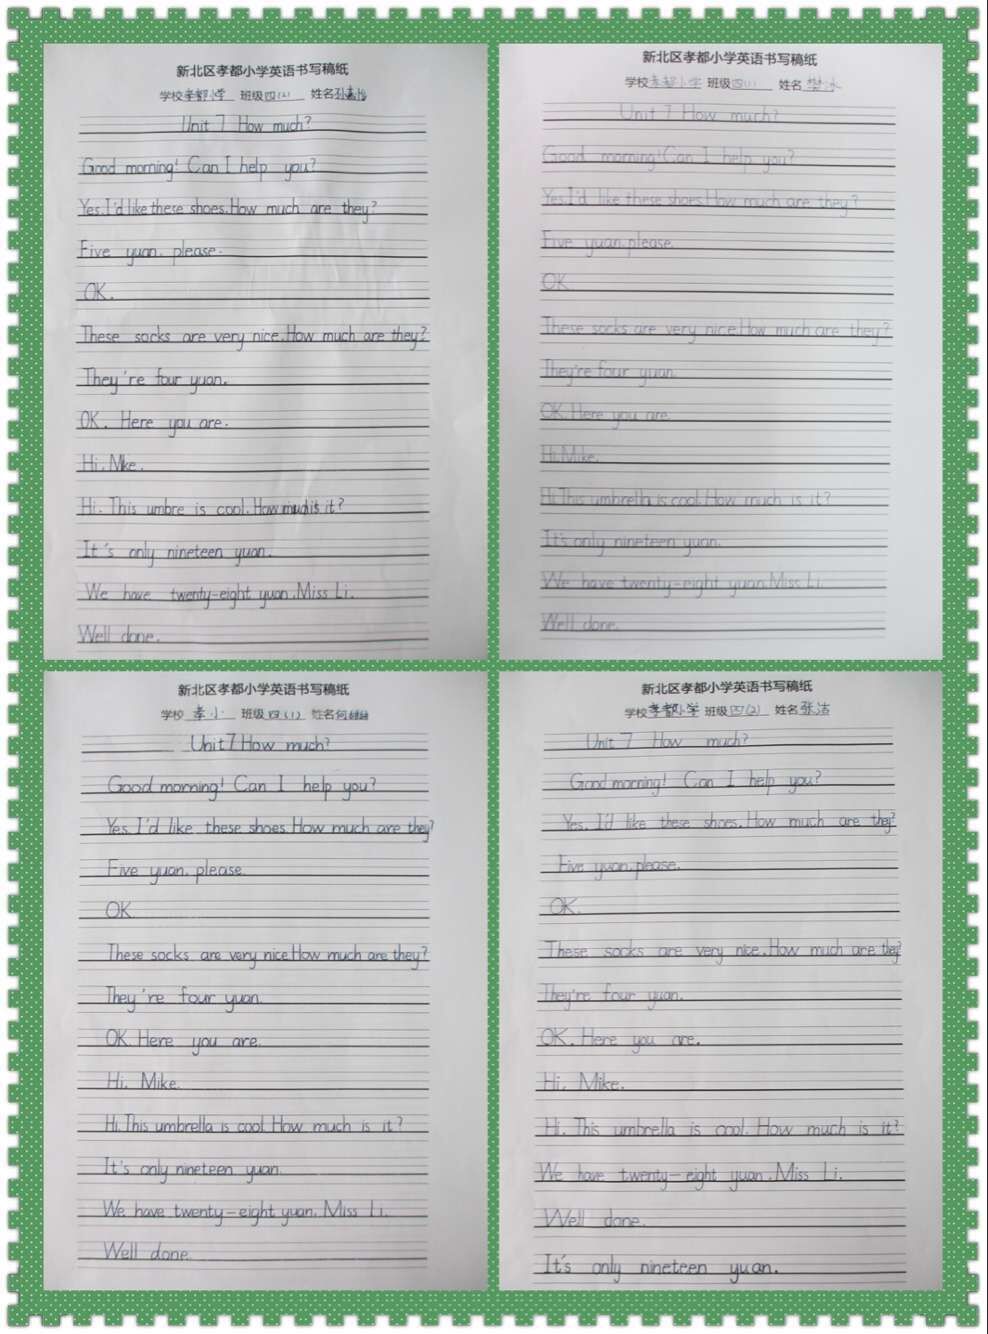 新北区孝都小学英语书写稿纸
学校孝都小学 班级四(2) 姓名
Unit 7 How much?
Good morning! Can I help you?
Yes. I'd like these shoes. How much are they?
Five yuan. please.
OK.
These socks are very nice. How much are they?
They're four yuan.
OK. Here you are.
Hi. Mke.
Hi. This umbre is cool. How much is it?
It's only nineteen yuan.
We have twenty-eight yuan. Miss Li.
Well done.
新北区孝都小学英语书写稿纸
学校孝都小学 班级四(1) 姓名樊冰
Unit 7 How much?
Good morning! Can I help you?
Yes. I'd like these shoes. How much are they?
Five yuan. please.
OK
These socks are very nice. How much are they?
They're four yuan.
OK. Here you are.
Hi. Mike.
Hi This umbrella is cool. How much is it?
It's only nineteen yuan.
We have twenty-eight yuan. Miss Li.
Well done.
新北区孝都小学英语书写稿纸
学校孝小 班级四(1) 姓名何
Unit 7 How much?
Good morning! Can I help you?
Yes. I'd like these shoes. How much are they?
Five yuan. please.
OK.
These socks are very nice. How much are they?
They're four yuan.
OK. Here you are.
Hi. Mike.
Hi. This umbrella is cool. How much is it?
It's only nineteen yuan.
We have twenty-eight yuan. Miss Li.
Well done.
新北区孝都小学英语书写稿纸
学校孝都小学 班级四(2) 姓名张洁
Unit 7 How much?
Good morning! Can I help you?
Yes. I'd like these shoes. How much are they?
Five yuan. please.
OK.
These socks are very nice. How much are they?
They're four yuan.
OK. Here you are.
Hi. Mike.
Hi. This umbrella is cool. How much is it?
We have twenty-eight yuan. Miss Li.
Well done.
It's only nineteen yuan.